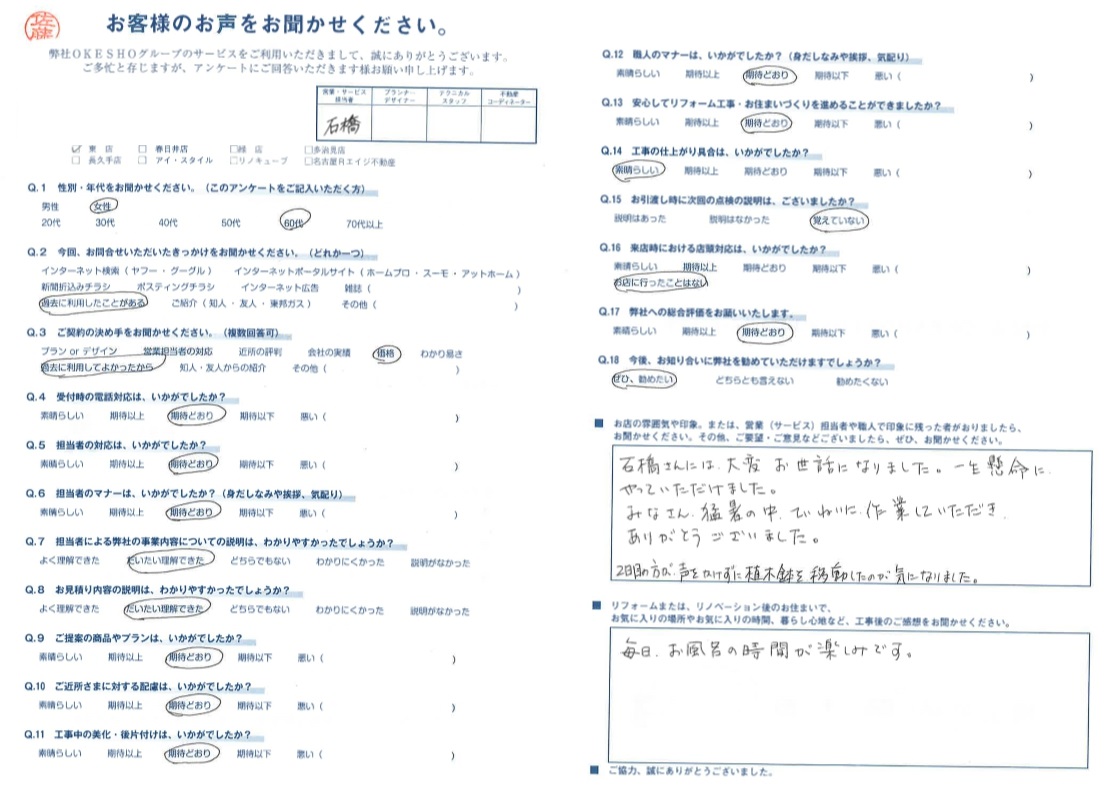 佐藤
お客様のお声をお聞かせください。
弊社OKESHOグループのサービスをご利用いただきまして、誠にありがとうございます。
ご多忙と存じますが、アンケートにご回答いただきます様お願い申し上げます。
営業・サービス担当者 プランナー デザイナー テクニカル スタッフ 不動産 コーディネーター
石橋
☑ 東店 □ 春日井店 □緑店 □多治見店
□ 長久手店 □ アイ・スタイル □リノキューブ □名古屋Rエイジ不動産
Q.1 性別・年代をお聞かせください。(このアンケートをご記入いただく方)
男性 女性
20代 30代 40代 50代 60代 70代以上
Q.2 今回、お問合せいただいたきっかけをお聞かせください。(どれか一つ)
インターネット検索(ヤフー・グーグル) インターネットポータルサイト(ホームプロ・スーモ・アットホーム)
新聞折込みチラシ ポスティングチラシ インターネット広告 雑誌( )
過去に利用したことがある ご紹介(知人・友人・東邦ガス) その他( )
Q.3 ご契約の決め手をお聞かせください。(複数回答可)
プラン or デザイン 営業担当者の対応 近所の評判 会社の実績 価格 わかり易さ
過去に利用してよかったから 知人・友人からの紹介 その他( )
Q.4 受付時の電話対応は、いかがでしたか?
素晴らしい 期待以上 期待どおり 期待以下 悪い( )
Q.5 担当者の対応は、いかがでしたか?
素晴らしい 期待以上 期待どおり 期待以下 悪い( )
Q.6 担当者のマナーは、いかがでしたか?(身だしなみや挨拶、気配り)
素晴らしい 期待以上 期待どおり 期待以下 悪い( )
Q.7 担当者による弊社の事業内容についての説明は、わかりやすかったでしょうか?
よく理解できた だいたい理解できた どちらでもない わかりにくかった 説明がなかった
Q.8 お見積り内容の説明は、わかりやすかったでしょうか?
よく理解できた だいたい理解できた どちらでもない わかりにくかった 説明がなかった
Q.9 ご提案の商品やプランは、いかがでしたか?
素晴らしい 期待以上 期待どおり 期待以下 悪い( )
Q.10 ご近所さまに対する配慮は、いかがでしたか?
素晴らしい 期待以上 期待どおり 期待以下 悪い( )
Q.11 工事中の美化・後片付けは、いかがでしたか?
素晴らしい 期待以上 期待どおり 期待以下 悪い( )
Q.12 職人のマナーは、いかがでしたか?(身だしなみや挨拶、気配り)
素晴らしい 期待以上 期待どおり 期待以下 悪い( )
Q.13 安心してリフォーム工事・お住まいづくりを進めることができましたか?
素晴らしい 期待以上 期待どおり 期待以下 悪い( )
Q.14 工事の仕上がり具合は、いかがでしたか?
素晴らしい 期待以上 期待どおり 期待以下 悪い( )
Q.15 お引渡し時に次回の点検の説明は、ございましたか?
説明はあった 説明はなかった 覚えていない
Q.16 来店時における店頭対応は、いかがでしたか?
素晴らしい 期待以上 期待どおり 期待以下 悪い( )
お店に行ったことはない
Q.17 弊社への総合評価をお願いいたします。
素晴らしい 期待以上 期待どおり 期待以下 悪い( )
Q.18 今後、お知り合いに弊社を勧めていただけますでしょうか?
ぜひ、勧めたい どちらとも言えない 勧めたくない
■ お店の雰囲気や印象。または、営業(サービス)担当者や職人で印象に残った者がおりましたら、
お聞かせください。その他、ご要望・ご意見などございましたら、ぜひ、お聞かせください。
石橋さんには、大変 お世話になりました。一生懸命に
やっていただけました。
みなさん、猛暑の中、ていねいに、作業していただき、
ありがとうございました。
2日目の方が、声をかけずに植木鉢を移動したのが気になりました。
■ リフォームまたは、リノベーション後のお住まいで、
お気に入りの場所やお気に入りの時間、暮らし心地など、工事後のご感想をお聞かせください。
毎日、お風呂の時間が楽しみです。
■ ご協力、誠にありがとうございました。